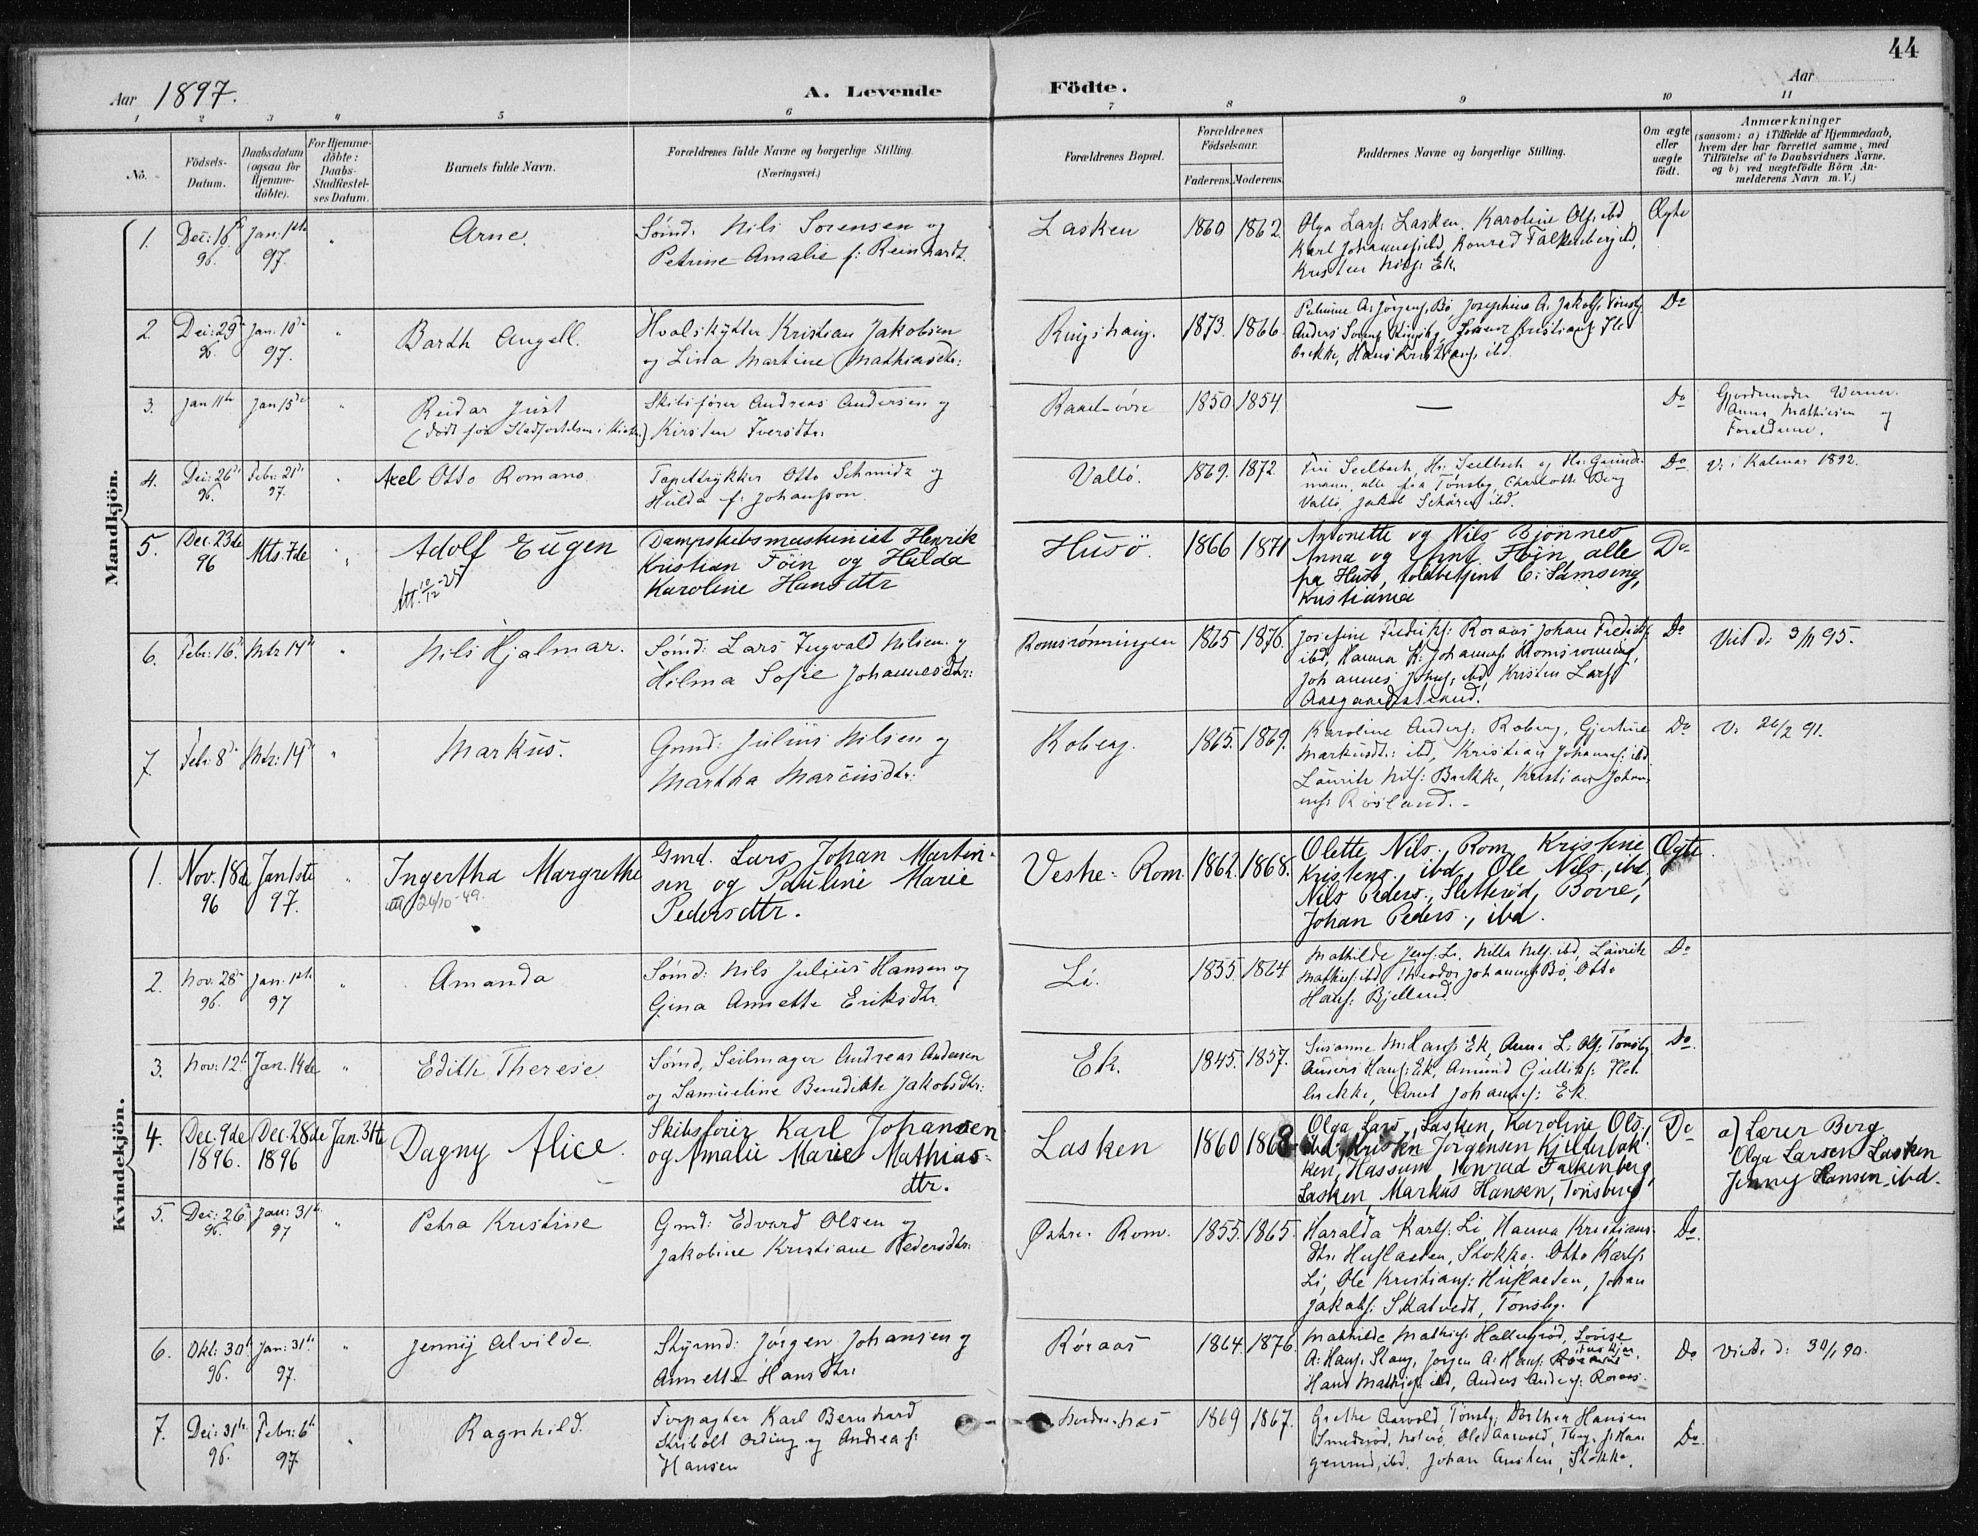 44
Aar 1897.
A. Levende Födte.
Aar
1 2 3 4 5 6 7 8 9 10 11
No.
Födsels-Datum.
Daabsdatum (ogsaa for Hjemme-döbte).
For Hjemme-döbte: Daabs-Stadfæstel-ses Datum.
Barnets fulde Navn.
Forældrenes fulde Navne og borgerlige Stilling.
(Næringsvei.)
Forældrenes Bopæl.
Forældrenes Födselsaar.
Faderens. Moderens.
Faddernes Navne og borgerlige Stilling.
Om ægte eller uægte födt.
Anmærkninger
(saasom: a) i Tilfælde af Hjemmedaab, hvem der har forrettet samme, med Tilföielse af to Daabsvidners Navne, og b) ved uægtefödte Börn An-melderens Navn m. V.)
Mandkjön.
1. Dec: 18 96. Jan. 1ste 97. " Arne. Sömd: Nils Sorensen og
Petrine Amalie f: Reinhardt.
Lasken 1860 1862 Olga Lars: Lasken, Karoline Ols: ibd
Karl Johannes: ibd, Konrad Falkenberg ibd,
Kristen Nils: Ek.
Ægte
2. Dec: 29de 96. Jan. 10de 97. " Barth Angell. Hvalskytter Kristian Jakobsen
og Lina Martine Mathiasdtr:
Ringshaug. 1873. 1866. Anders
Kristians:
bekke, Hans Kristians: ibd.
Do
3. Jan 11te Jan 15de " Reidar Just
(död för Stadfæstelsen i Kirken)
Skibsförer Andreas Andersen og
Kirsten Iversdtr:
1850 1854 — Do Gjordemoder Werner.
Anna Mathisen og
Forældrene.
4. Dec: 26de 96. Febr: 21de 97. " Axel Otto Romano. Tapettrykker Otto Schmidt og
Hulda f: Johansson.
Vallö. 1869. 1872 Seelbach, Hr: Seelbach og Hr: Grund-
mann, alle fra Tönsbg. Charlotte Berg
Vallö, Jakob Schärer ibd.
Do V. i Kalmar 1892.
5. Dec. 23de 96 Mts. 7de " Adolf Eugen
Att. 10/12-25
Dampskibsmaskinist Henrik
Kristian Föin og Hilda
Karoline Hansdtr
Husö. 1866 1871 Antonette og Nils Bjönnes
Anna og Arnt Föin, alle
fra Husö, toldbetjent C. Samsing,
Kristiania
Do
6. Febr: 16de Mts 14de " Nils Hjalmar. Sömd: Lars Ingvald Nilsen og
Hilma Sofie Johannesdtr:
Romsrönningen 1865 1876. Josefine Fredriks: Roraas Johan Fredriks:
ibd, Hanna K. Johannes: Romsrönning,
Johannes Johs: ibd, Kristen Lars:
Aasgaardstrand.
Do Viet d: 3/11 95.
7 Febr: 8de Mts: 14de " Markus. Gmd: Julius Nilsen og
Martha Marcusdtr:
Roberg. 1865. 1869. Karoline Anders: Roberg, Gjertine
Markusdtr: ibd, Kristian Johannes: ibd
Laurits Nils: Bakke, Kristian Johan-
nes: Rösland.
Do V. 26/2 91.
Kvindekjön.
1. Nov. 18de 96 Jan 1ste 97. " Ingertha Margrethe
att 26/10-49.
Gmd. Lars Johan Martin-
sen og Pauline Marie
Pedersdtr.
Vestre Rom. 1862. 1868. Olette Nils., Rom, Kristine
Kristens., ibd, Ole Nils., ibd,
Nils Peders., Sletteröd, Borre,
Johan Peders., ibd.
Ægte.
2. Nov. 28de 96. Jan. 1ste 97 " Amanda Sömd: Nils Julius Hansen og
Gina Annette Eriksdtr.
Li. 1855. 1864 Mathilde Jens: Li. Nilla Nils: ibd, Laurits
Mathis: ibd Theodor Johannes: Bö, Otto
Hans: Bjelland
Do
3. Nov: 12te Jan. 14de " Edith Therese. Sömd, Seilmager Andreas Andersen
og Samueline Benedikte Jakobsdtr:
Ek. 1845. 1857. Susanne M: Hans: Ek, Anna L. Ols: Tönsbg
Anders Hans: Ek, Amund Gulliks:
bekke, Arnt Johannes: Ek.
Do.
4. Dec. 9de 1896. Dec. 28de 1896 Jan. 31te Dagny Alice. Skibsförer Karl Johansen
og Amalie Marie Mathias-
dtr.
Lasken 1860 1868 Olga Lars., Lasken, Karoline Ols.,
ibd, Kristen Jörgensen Kjelderbak-
ken, Hassum, Konrad Falkenberg,
Lasken, Markus Hansen, Tönsberg
Do a) Lærer Berg
Olga Larsen Lasken
Jenny Hansen ibd.
5. Dec: 26 96. Jan: 31te 97 " Petra Kristine Gmd: Edvard Olsen og
Jakobine Kristiane Pedersdtr:
Östre Rom. 1855. 1865. Haralda Karls: Li, Hanna Kristians-
dtr: Huflaaten, Stokke. Otto Karls:
Li, Ole Kristians: Huflaaten, Johan
Jakobs: Skatvedt, Tönsbg.
Do.
6. Okt: 30te 96. Jan: 31te 97. " Jenny Alvilde. Styrmd: Jörgen Johansen og
Annette Hansdtr:
Röraas 1864. 1876. Mathilde Mathis: Hallingröd, Lovise
A: Hans: Stang, Jörgen A: Hans:
Hans Mathis: ibd, Anders Anders: Roraas.
Do Viede d: 30/1 90.
7. Dec: 31te 96. Febr: 6te 97. " Ragnhild. Forpagter Karl Bernhard
Skibolt Ording og Andrea f:
Hansen
1869 1867. Grethe Aarvold, Tönsbg, Dorthea Hansen
Smedsröd, Ole Aarvold,
ibd. Johan Austen, Stokke.
Do